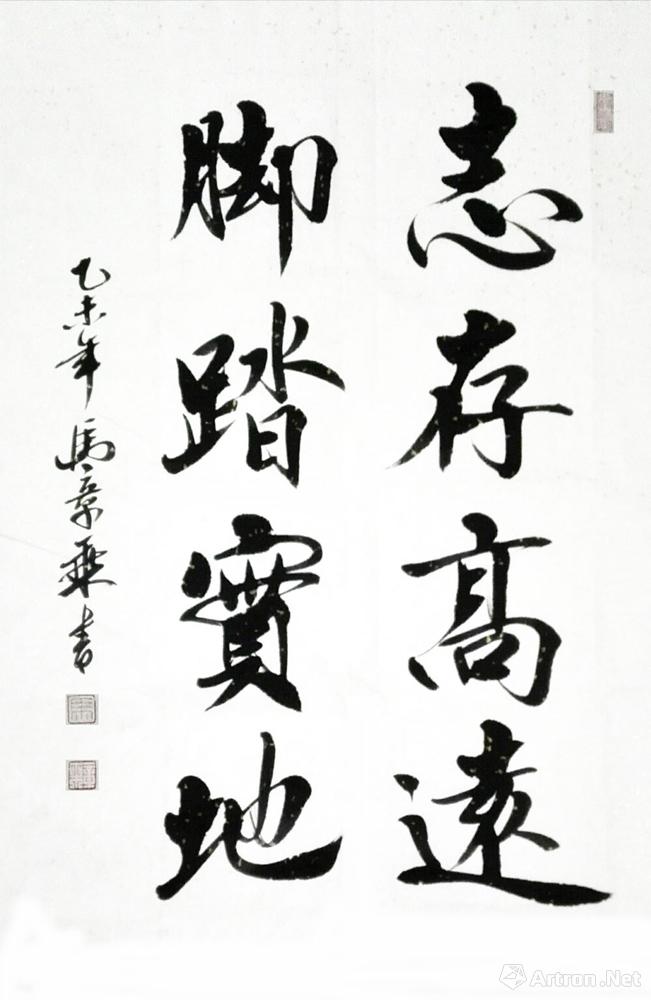 志存高遠
脚踏實地
乙未年馬章乘書
Artron.Net